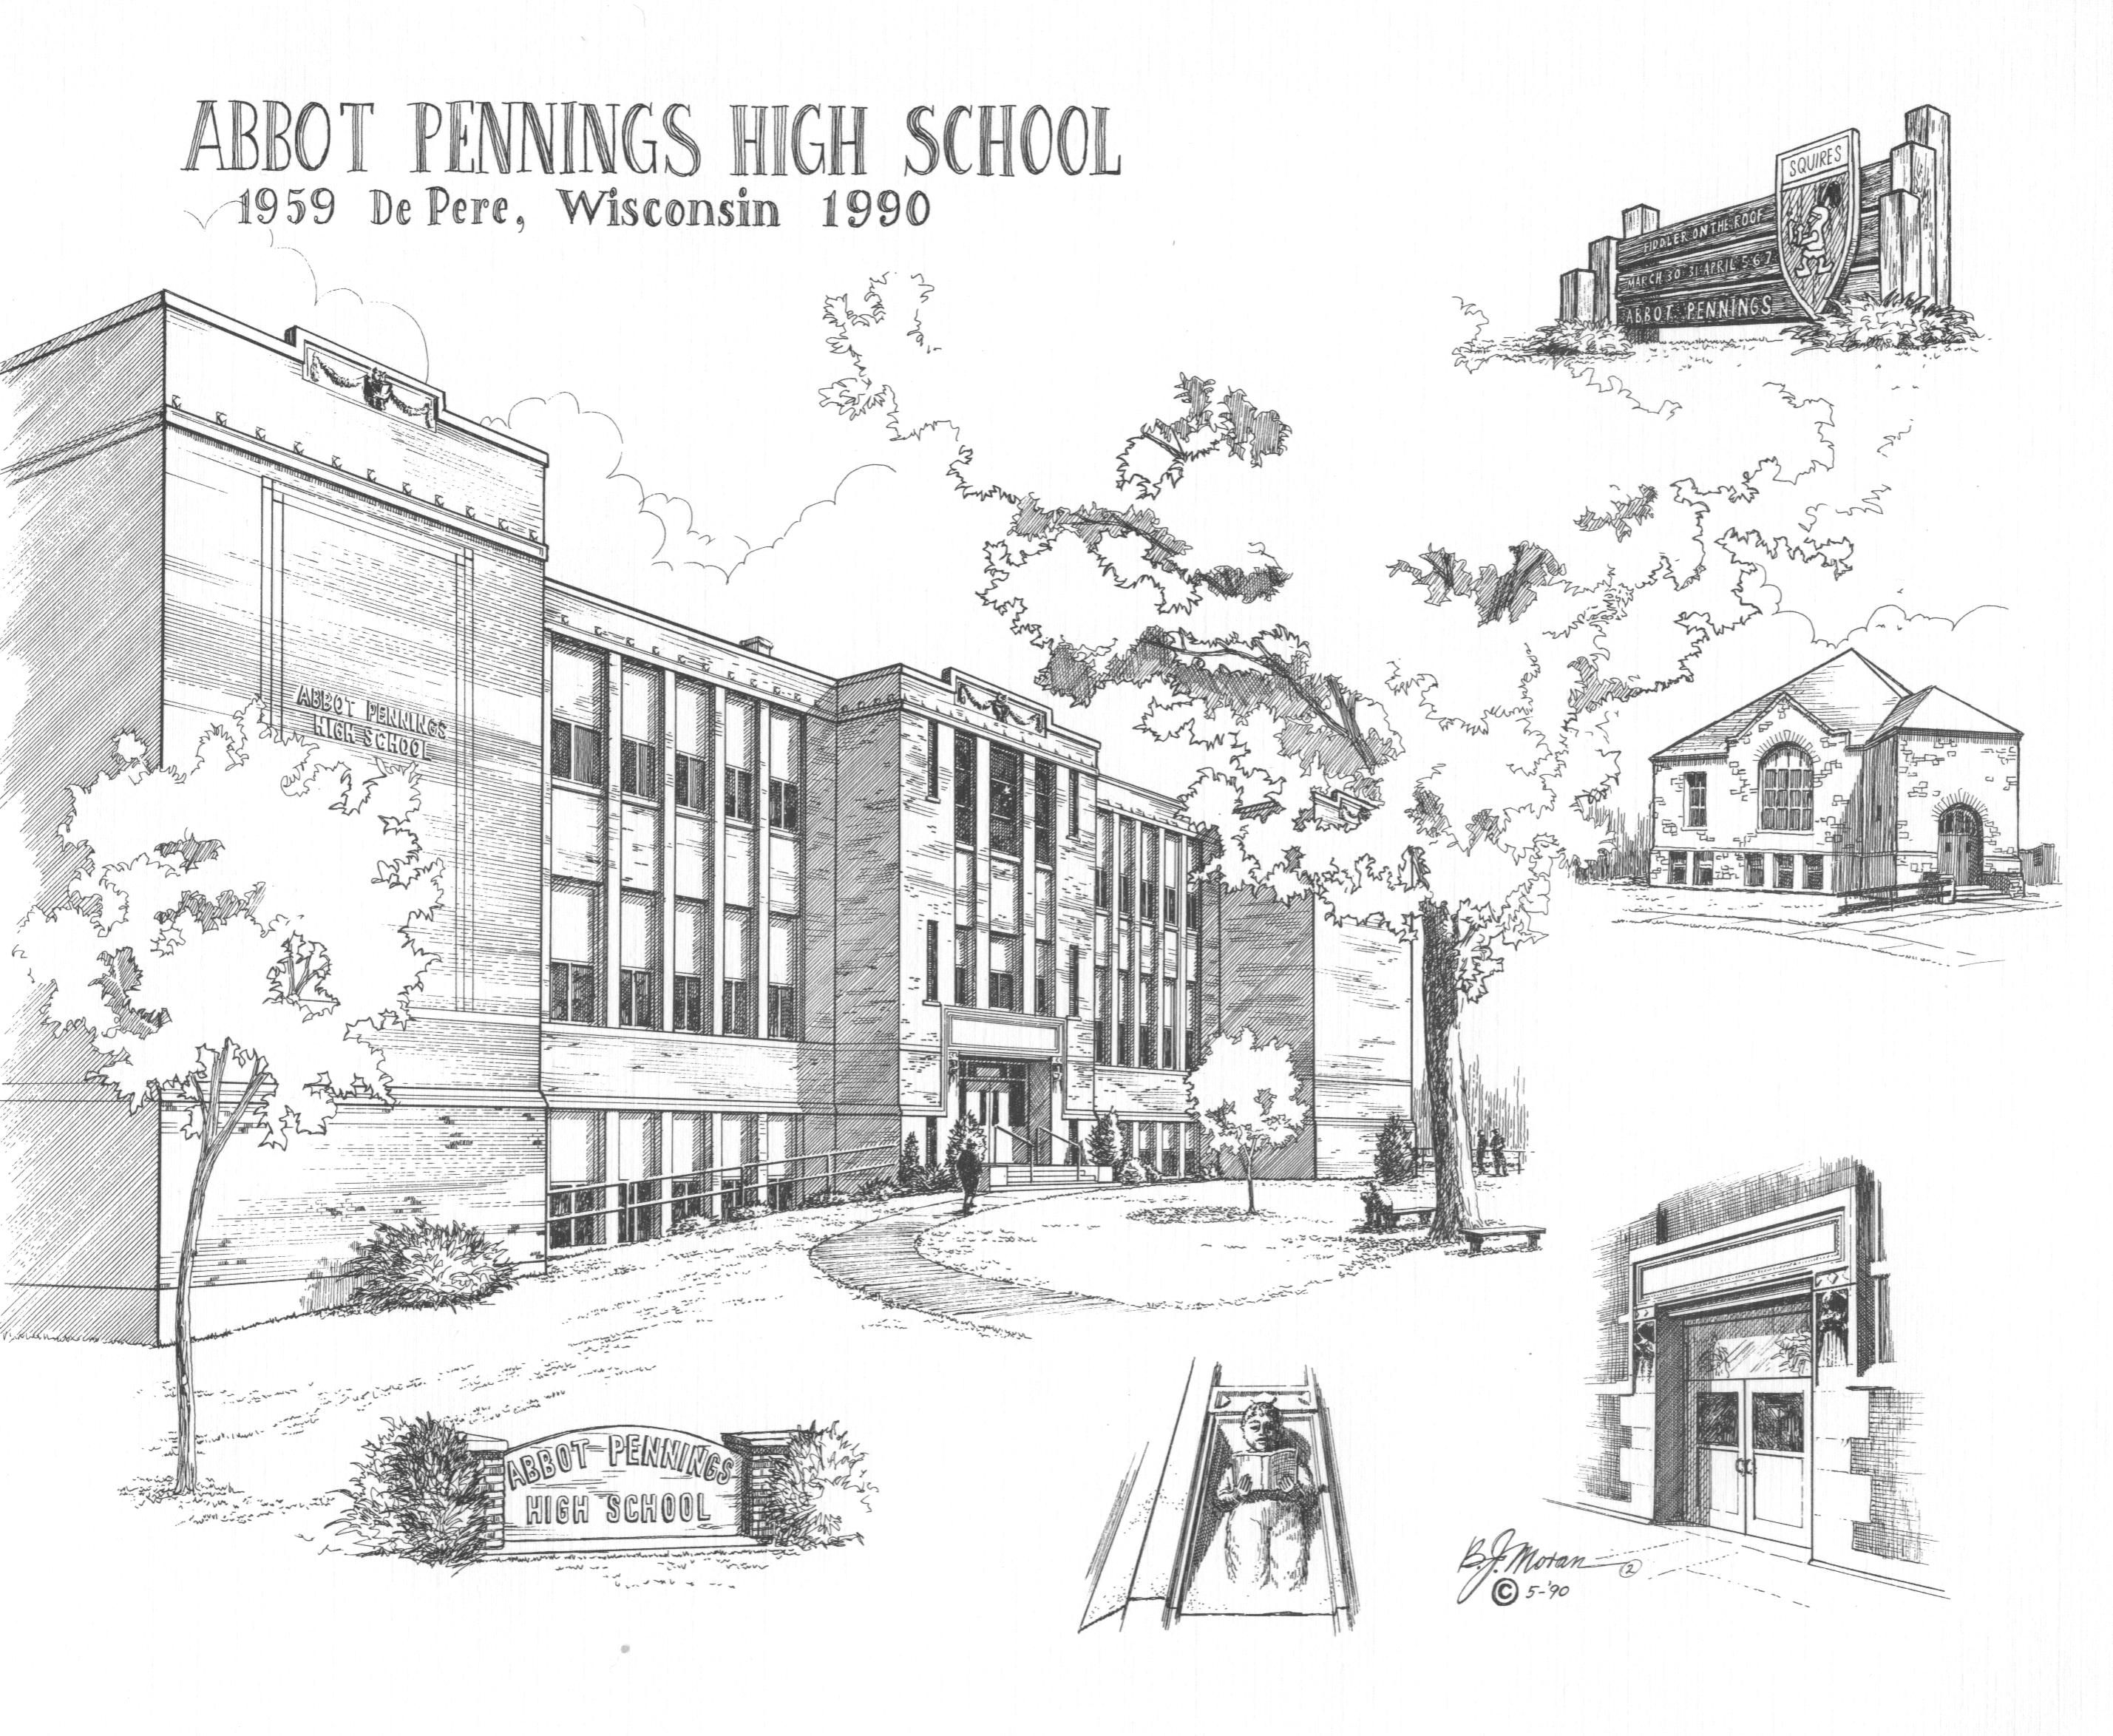 ABBOT PENNINGS HIGH SCHOOL
1959 De Pere, Wisconsin 1990
SQUIRES
FIDDLER ON THE ROOF
MARCH 30 31 APRIL 5 6 7
ABBOT PENNINGS
ABBOT PENNINGS
HIGH SCHOOL
ABBOT PENNINGS
HIGH SCHOOL
B.J. Moran 2
© 5-'90